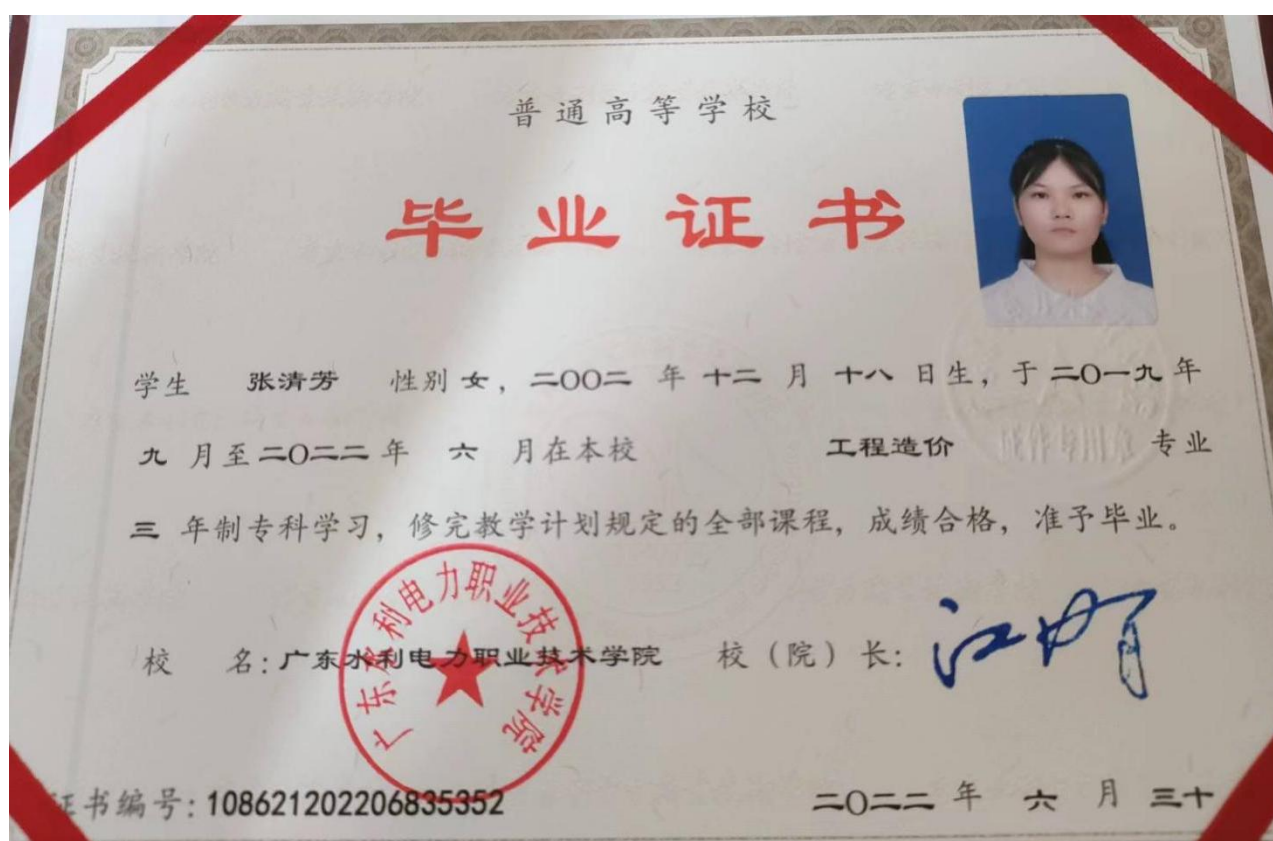 普通高等学校
毕业证书
学生 张清芳 性别 女，二〇〇二 年 十二 月 十八 日生，于 二〇一九 年
九 月至 二〇二二 年 六 月在本校 工程造价 专业
三 年制专科学习，修完教学计划规定的全部课程，成绩合格，准予毕业。
广东水利电力职业技术学院
校 名：广东水利电力职业技术学院 校（院）长：
证书编号：108621202206835352 二〇二二 年 六 月 三十